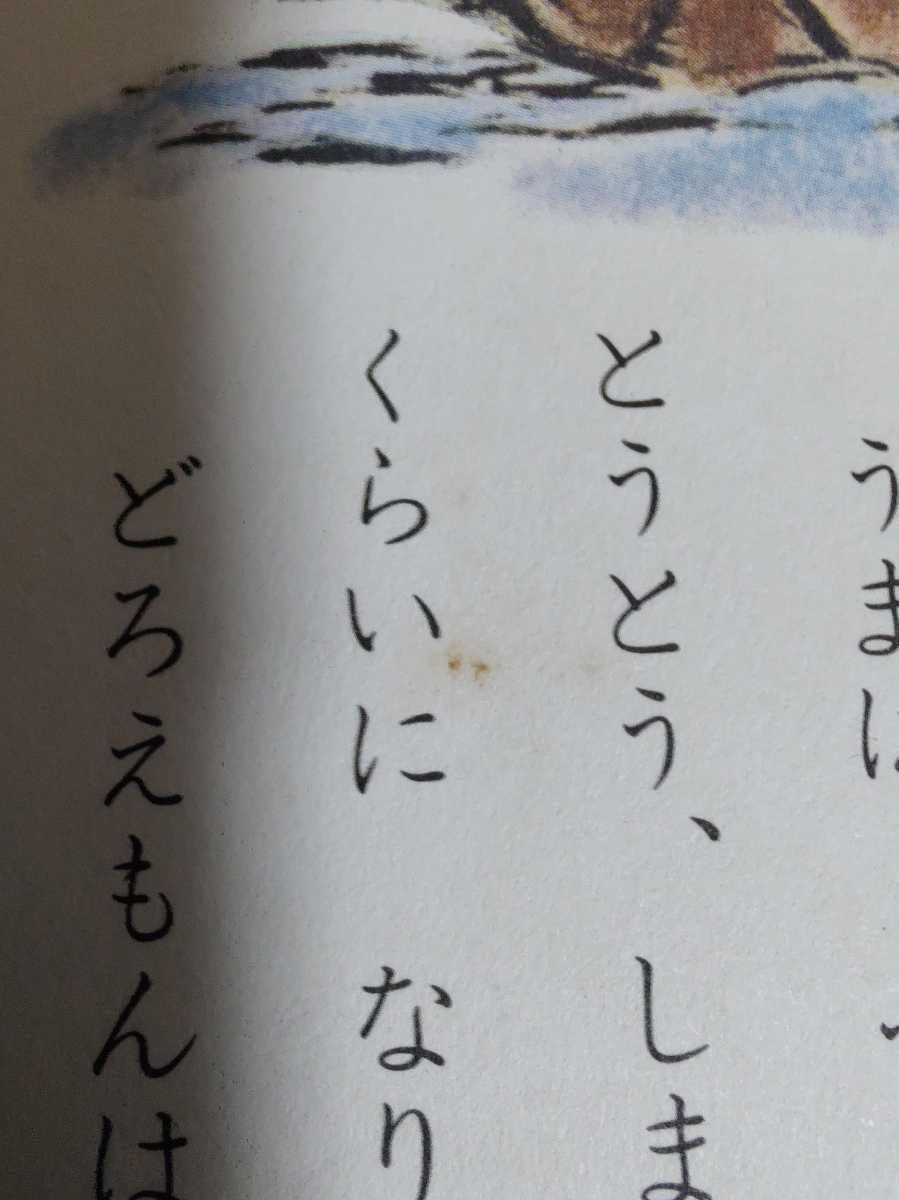 うま
とうとう、しま
くらいに なり
どろえもんは